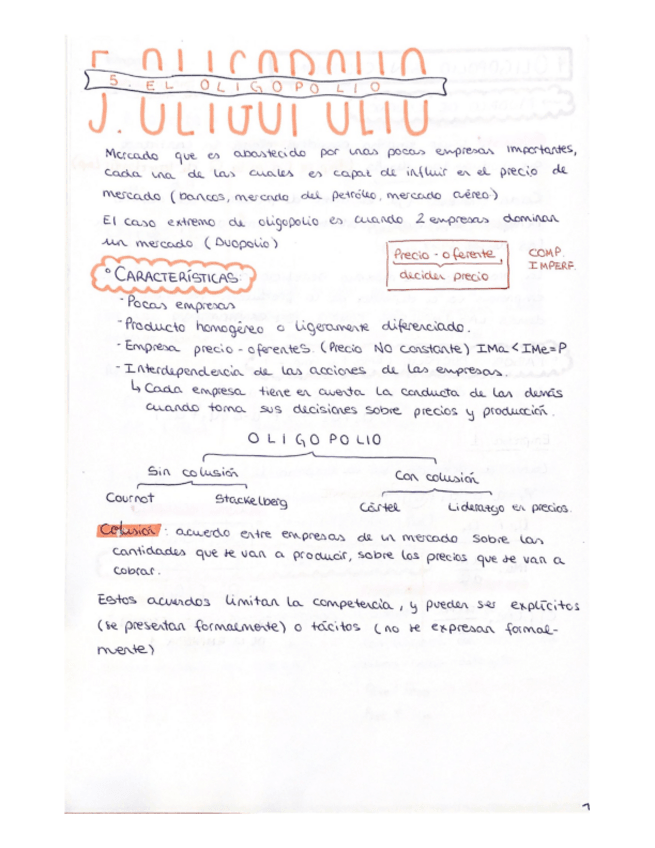 5. EL OLIGOPOLIO
Mercado que es abastecido por unas pocas empresas importantes,
cada una de las cuales es capaz de influir en el precio de
mercado (bancos, mercado del petróleo, mercado aéreo)
El caso extremo de oligopolio es cuando 2 empresas dominan
un mercado (Duopolio)
Precio-oferente,
deciden precio
COMP.
IMPERF.
° CARACTERÍSTICAS:
- Pocas empresas
- Producto homogéneo o ligeramente diferenciado.
- Empresa precio-oferentes. (Precio NO constante) IMa < IMe = P
- Interdependencia de las acciones de las empresas.
↳ Cada empresa tiene en cuenta la conducta de las demás
cuando toma sus decisiones sobre precios y producción.
OLIGOPOLIO
Sin colusión
Con colusión
Cournot
Stackelberg
Cártel
Liderazgo en precios.
Colusión: acuerdo entre empresas de un mercado sobre las
cantidades que se van a producir, sobre los precios que se van a
cobrar.
Estos acuerdos limitan la competencia, y pueden ser explícitos
(se presentan formalmente) o tácitos (no se expresan formal-
mente)
1